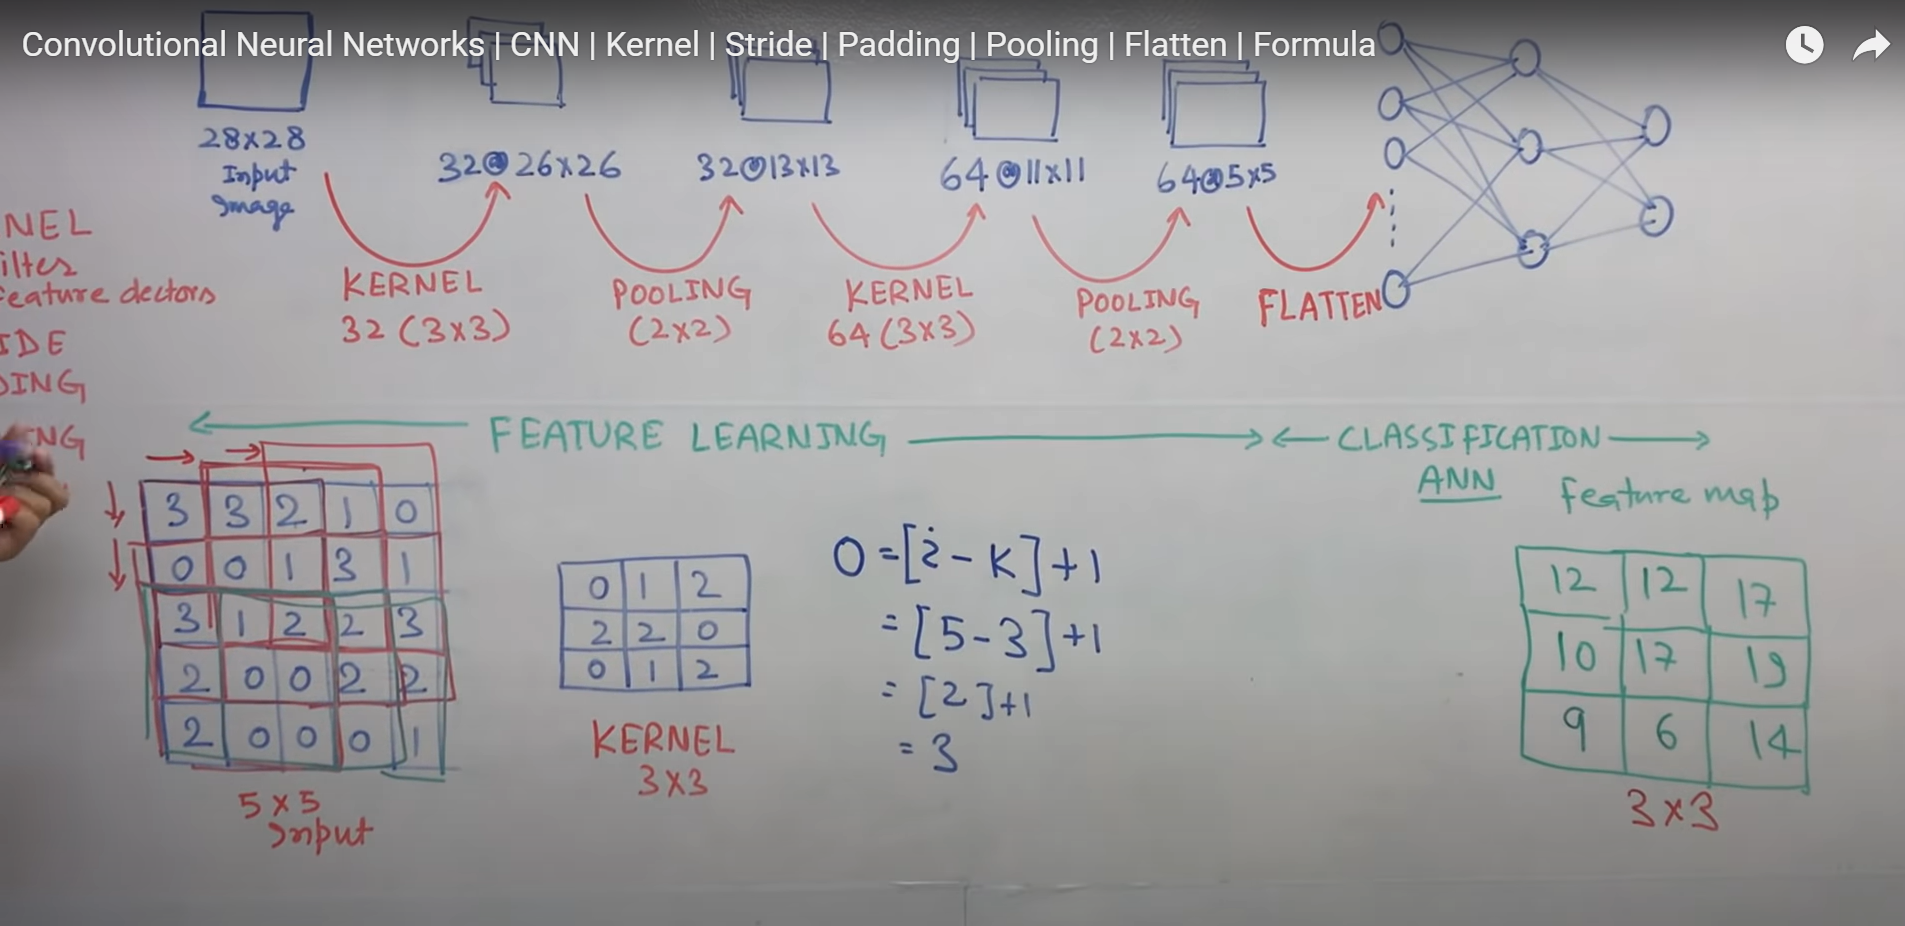 Convolutional Neural Networks | CNN | Kernel | Stride | Padding | Pooling | Flatten | Formula
28×28
Input
Image
32@26×26
32@13×13
64@11×11
64@5×5
NEL
ilter
feature dectors
IDE
DING
ING
KERNEL
32 (3×3)
POOLING
(2×2)
KERNEL
64 (3×3)
POOLING
(2×2)
FLATTEN
FEATURE LEARNING
CLASSIFICATION
ANN
3 3 2 1 0
0 0 1 3 1
3 1 2 2 3
2 0 0 2 2
2 0 0 0 1
5×5
Input
0 1 2
2 2 0
0 1 2
KERNEL
3×3
O = [i - K] + 1
= [5 - 3] + 1
= [2] + 1
= 3
feature map
12 12 17
10 17 19
9 6 14
3×3